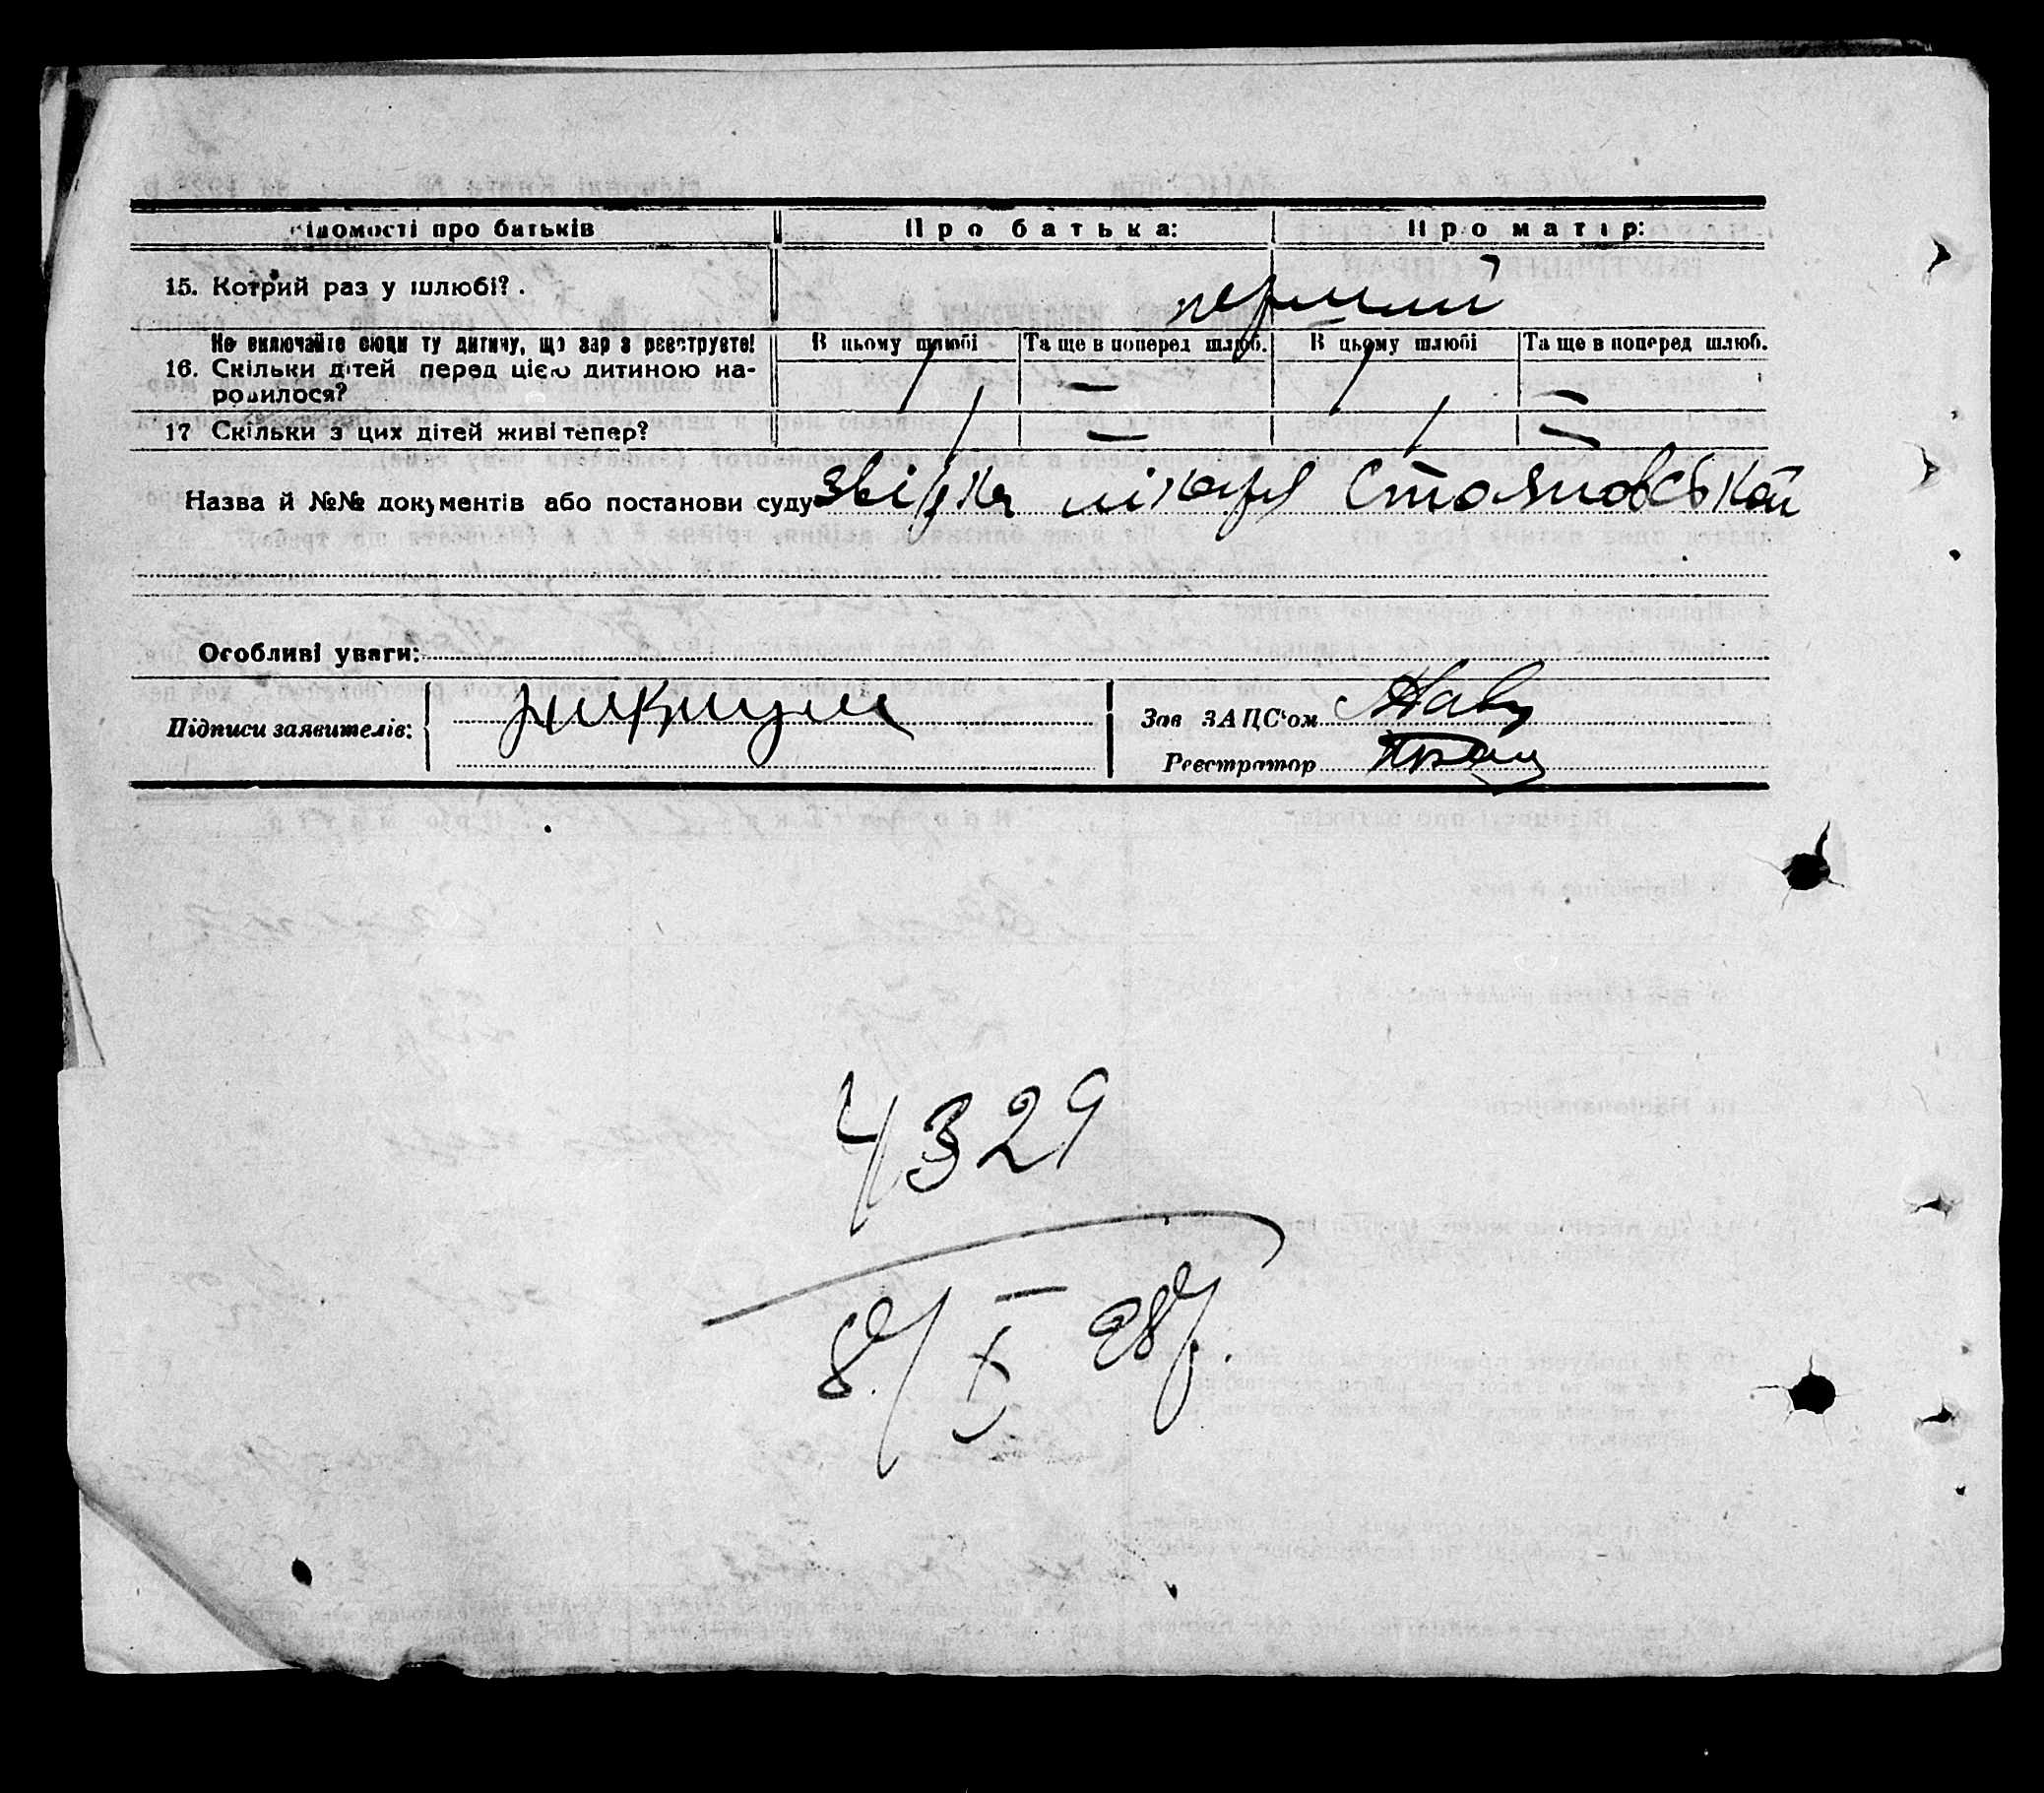 ідомості про батьків
Про батька:
Про матір:
15. Котрий раз у шлюбі?
перший
Не включайте сюди ту дитину, що зараз реєструєте!
В цьому шлюбі
Та ще в поперед шлюб.
В цьому шлюбі
Та ще в поперед шлюб.
16. Скільки дітей перед цією дитиною на-
родилося?
1 — 1 —
17 Скільки з цих дітей живі тепер?
1 — 1 —
Назва й №№ документів або постанови суду звідка лікаря Стояновської
Особливі уваги:
Підписи заявителів:
Зав ЗАЦС'ом
Реєстратор
4329
8/X 28р.